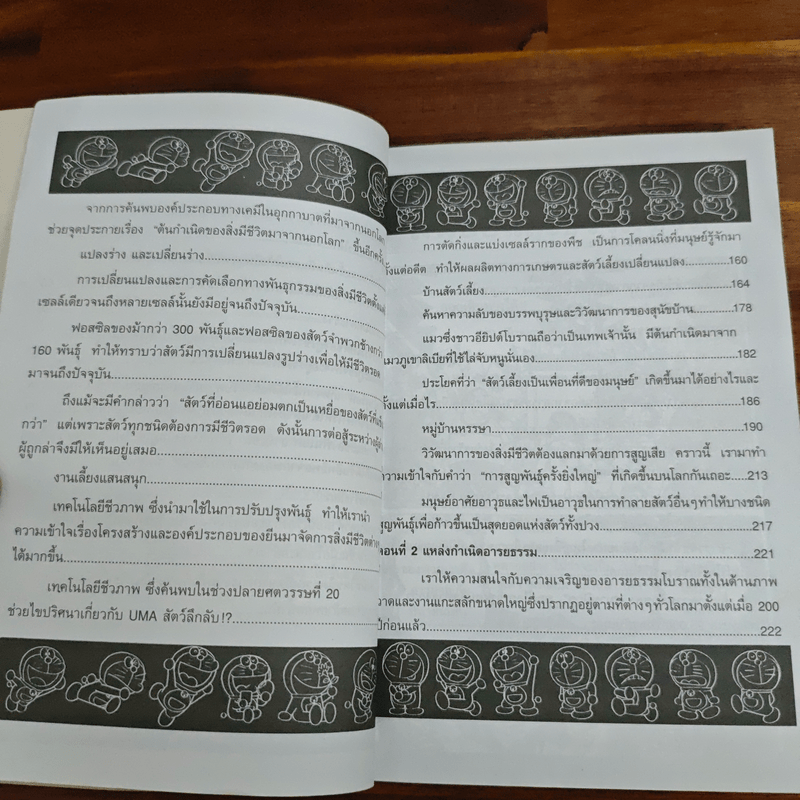 จากการค้นพบองค์ประกอบทางเคมีในอุกกาบาตที่มาจากนอกโลก
ช่วยจุดประกายเรื่อง "ต้นกำเนิดของสิ่งมีชีวิตมาจากนอกโลก" ขึ้นอีกครั้ง
แปลงร่าง และเปลี่ยนร่าง
การเปลี่ยนแปลงและการคัดเลือกทางพันธุกรรมของสิ่งมีชีวิตตั้งแต่
เซลล์เดียวจนถึงหลายเซลล์นั้นยังมีอยู่จนถึงปัจจุบัน
ฟอสซิลของม้ากว่า 300 พันธุ์และฟอสซิลของสัตว์จำพวกช้างกว่า
160 พันธุ์ ทำให้ทราบว่าสัตว์มีการเปลี่ยนแปลงรูปร่างเพื่อให้มีชีวิตรอด
มาจนถึงปัจจุบัน
ถึงแม้จะมีคำกล่าวว่า "สัตว์ที่อ่อนแอย่อมตกเป็นเหยื่อของสัตว์ที่
กว่า" แต่เพราะสัตว์ทุกชนิดต้องการมีชีวิตรอด ดังนั้นการต่อสู้ระหว่าง
ผู้ถูกล่าจึงมีให้เห็นอยู่เสมอ
งานเลี้ยงแสนสนุก
เทคโนโลยีชีวภาพ ซึ่งนำมาใช้ในการปรับปรุงพันธุ์ ทำให้เรานำ
ความเข้าใจเรื่องโครงสร้างและองค์ประกอบของยีนมาจัดการสิ่งมีชีวิต
ได้มากขึ้น
เทคโนโลยีชีวภาพ ซึ่งค้นพบในช่วงปลายศตวรรษที่ 20
ช่วยไขปริศนาเกี่ยวกับ UMA สัตว์ลึกลับ!?
การตัดกิ่งและแบ่งเซลล์รากของพืช เป็นการโคลนนิ่งที่มนุษย์รู้จักมา
ตั้งแต่อดีต ทำให้ผลผลิตทางการเกษตรและสัตว์เลี้ยงเปลี่ยนแปลง 160
บ้านสัตว์เลี้ยง 164
ค้นหาความลับของบรรพบุรุษและวิวัฒนาการของสุนัขบ้าน 178
แมวซึ่งชาวอียิปต์โบราณถือว่าเป็นเทพเจ้านั้น มีต้นกำเนิดมาจาก
แมวภูเขาลิเบียที่ใช้ไล่จับหนูนั่นเอง 182
ประโยคที่ว่า "สัตว์เลี้ยงเป็นเพื่อนที่ดีของมนุษย์" เกิดขึ้นมาได้อย่างไรและ
ตั้งแต่เมื่อไร 186
หมู่บ้านหรรษา 190
วิวัฒนาการของสิ่งมีชีวิตต้องแลกมาด้วยการสูญเสีย คราวนี้ เรามาทำ
ความเข้าใจกับคำว่า "การสูญพันธุ์ครั้งยิ่งใหญ่" ที่เกิดขึ้นบนโลกกันเถอะ 213
มนุษย์อาศัยอาวุธและไฟเป็นอาวุธในการทำลายสัตว์อื่นๆทำให้บางชนิด
สูญพันธุ์เพื่อก้าวขึ้นเป็นสุดยอดแห่งสัตว์ทั้งปวง 217
ตอนที่ 2 แหล่งกำเนิดอารยธรรม 221
เราให้ความสนใจกับความเจริญของอารยธรรมโบราณทั้งในด้านภาพ
วาดและงานแกะสลักขนาดใหญ่ซึ่งปรากฏอยู่ตามที่ต่างๆทั่วโลกมาตั้งแต่เมื่อ 200
ปีก่อนแล้ว 222